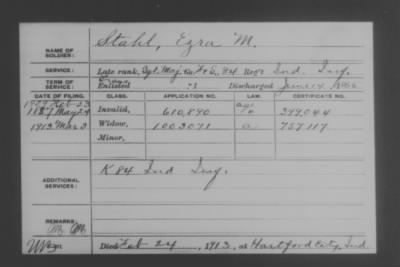 NAME OF SOLDIER: Stahl, Ezra M.
SERVICE: Late rank, Sgt. Maj. Co. F & S., 84 Reg't Ind. Inf.
TERM OF SERVICE: Enlisted 18 Discharged June 14 1865
DATE OF FILING. CLASS. APPLICATION NO. LAW. CERTIFICATE NO.
Feb 23
May 24 Invalid, 610,890 399,044
1913 Mar 3 Widow, 1003071 757117
Minor,
ADDITIONAL SERVICES: K 84 Ind Inf.
REMARKS:
Died Feb 24, 1913, at Hartford City, Ind.